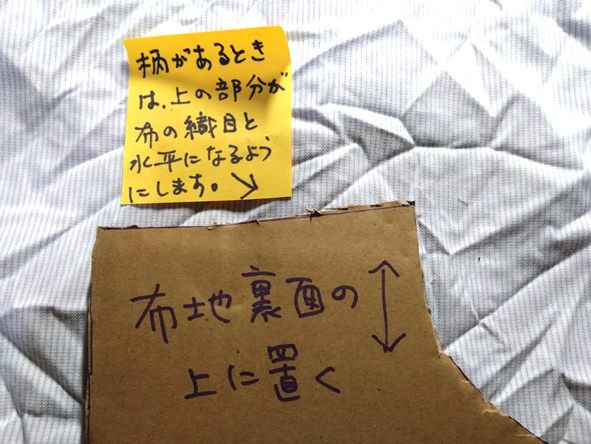 柄があるとき
は、上の部分が
布の織目と
水平になるよう
にします。↘
布地裏面の
上に置く